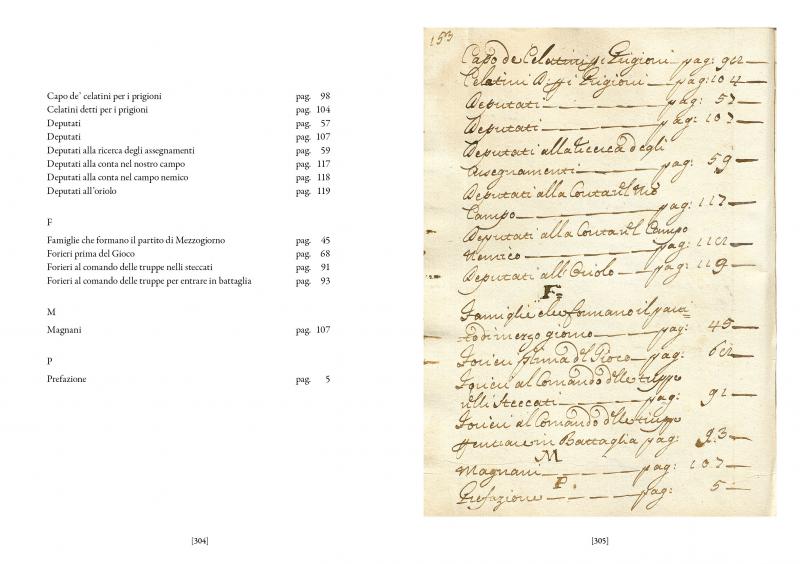 Capo de' celatini per i prigioni pag. 98
Celatini detti per i prigioni pag. 104
Deputati pag. 57
Deputati pag. 107
Deputati alla ricerca degli assegnamenti pag. 59
Deputati alla conta nel nostro campo pag. 117
Deputati alla conta nel campo nemico pag. 118
Deputati all'oriolo pag. 119
F
Famiglie che formano il partito di Mezzogiorno pag. 45
Forieri prima del Gioco pag. 68
Forieri al comando delle truppe nelli steccati pag. 91
Forieri al comando delle truppe per entrare in battaglia pag. 93
M
Magnani pag. 107
P
Prefazione pag. 5
[304]
153
Capo de Celatini pi Prigioni pag: 98
Celatini Detti pi Prigioni pag: 104
Deputati pag: 57
Deputati pag: 107
Deputati alla ricerca degli
Assegnamenti pag: 59
Deputati alla Conta nel
Campo pag: 117
Deputati alla Conta nel Campo
Nemico pag: 118
Deputati all'Oriolo pag: 119
F.
Famiglie che formano il parti=
to di mezzo giorno pag: 45
Forieri prima del Gioco pag: 68
Forieri al Comando delle truppe
nelli Steccati pag: 91
Forieri al Comando delle truppe
entrare in Battaglia pag: 93
M
Magnani pag: 107
P.
Prefazione pag: 5
[305]